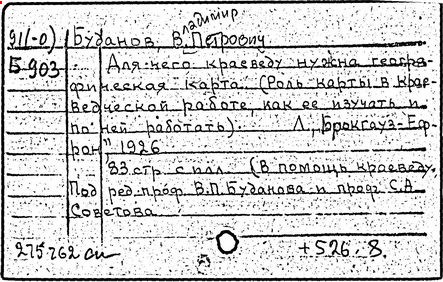 91(-0) Буданов, Владимир Петрович
Б 903 Для чего краеведу нужна геогра-
фическая карта. (Роль карты в крае-
ведческой работе как ее изучать и
по ней работать). Л., „Брокгауз-Еф-
рон", 1926
83 стр. с илл. (В помощь краеведу.
Под ред. проф. В.П. Буданова и проф. С.А.
Советова
275762 +526 8.